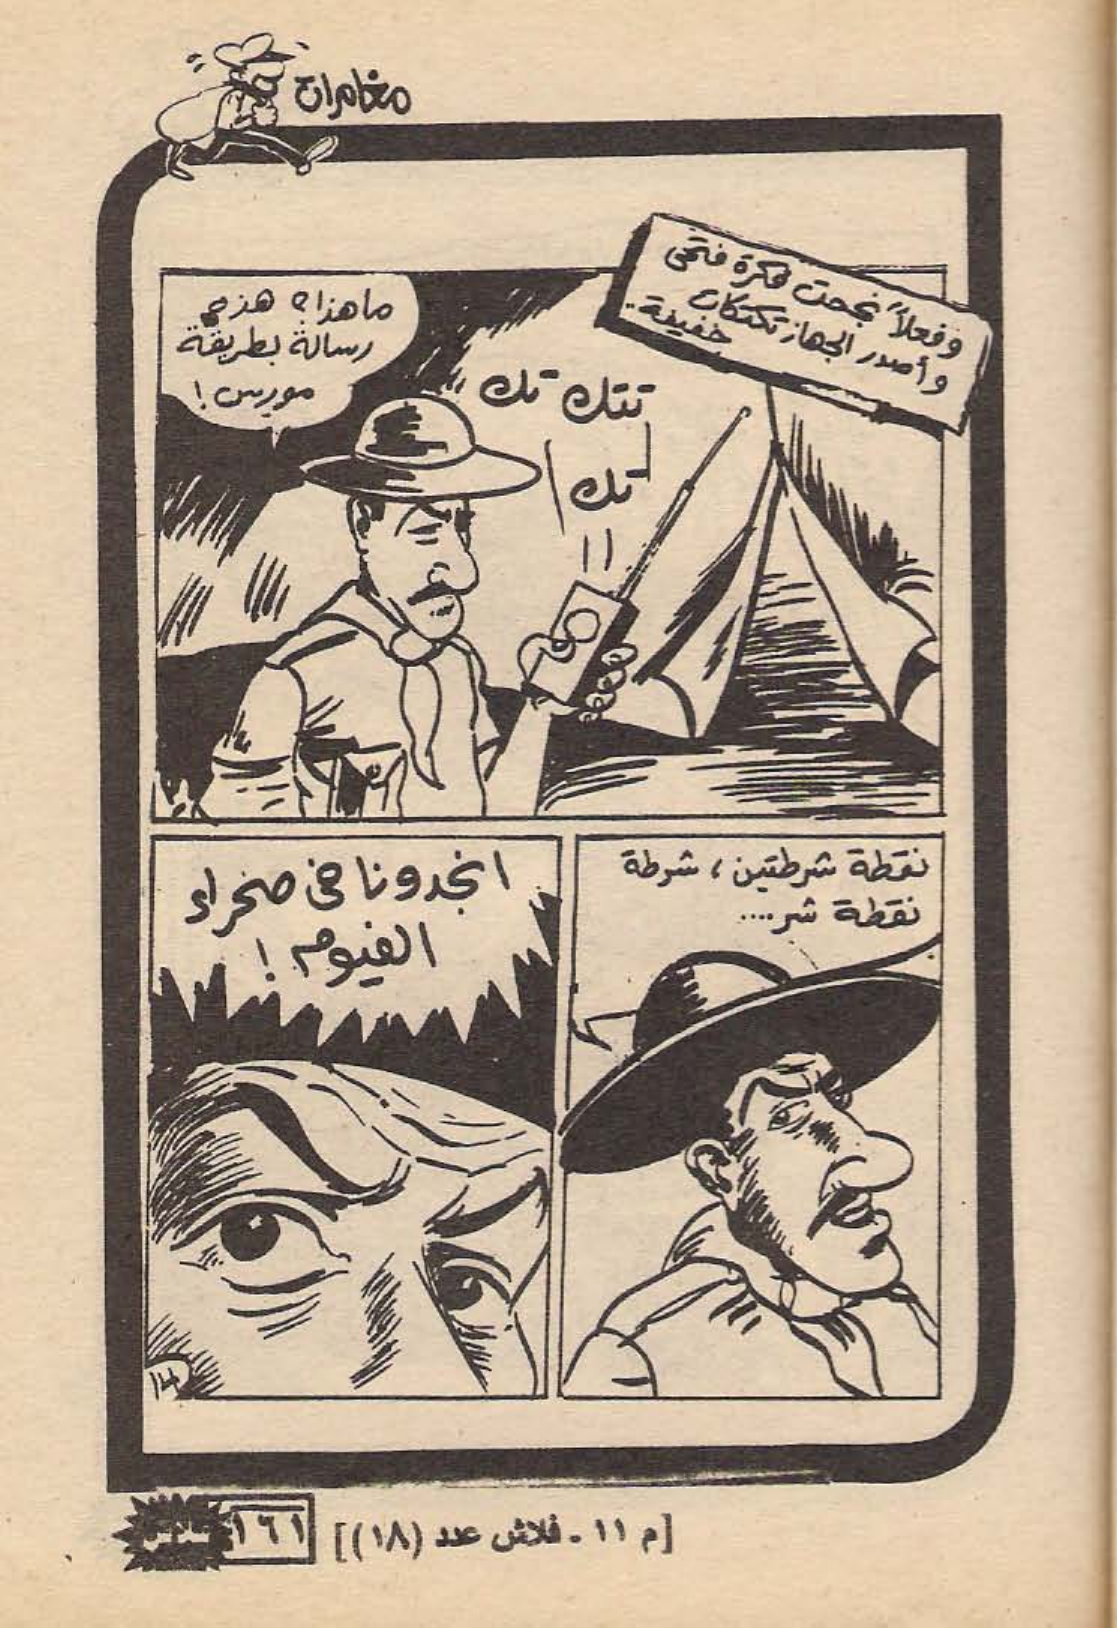 مغامرات
وفعلاً نجحت فكرة فتحى
وأصدر الجهاز تكتكات
خفيفة..
ما هذا؟ هذه
رسالة بطريقة
موريس!
تتك تك
تك
نقطة شرطتين، شرطة
نقطة شر....
انجدونا فى صخراء
الفيوم!
١٣
[م ١١ ـ فلاش عدد (١٨)]
١٦١